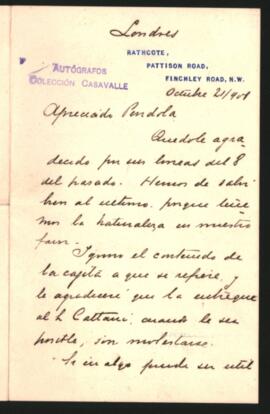 Londres
RATHCOTE,
PATTISON ROAD,
FINCHLEY ROAD, N.W.
AUTÓGRAFOS
COLECCIÓN CASAVALLE
Octubre 21/901
Apreciado Pendola
Quedole agra
decido por sus lineas del 8
del pasado. Hemos de salir
bien al ultimo, porque
mos la naturaleza en nuestro
favor.
Ignoro el contenido de
la cajita a que se refiere, y
le agradeceré que la entregue
al Sr Cattani, cuando le sea
posible, sin molestarse.
Si en algo puedo ser util